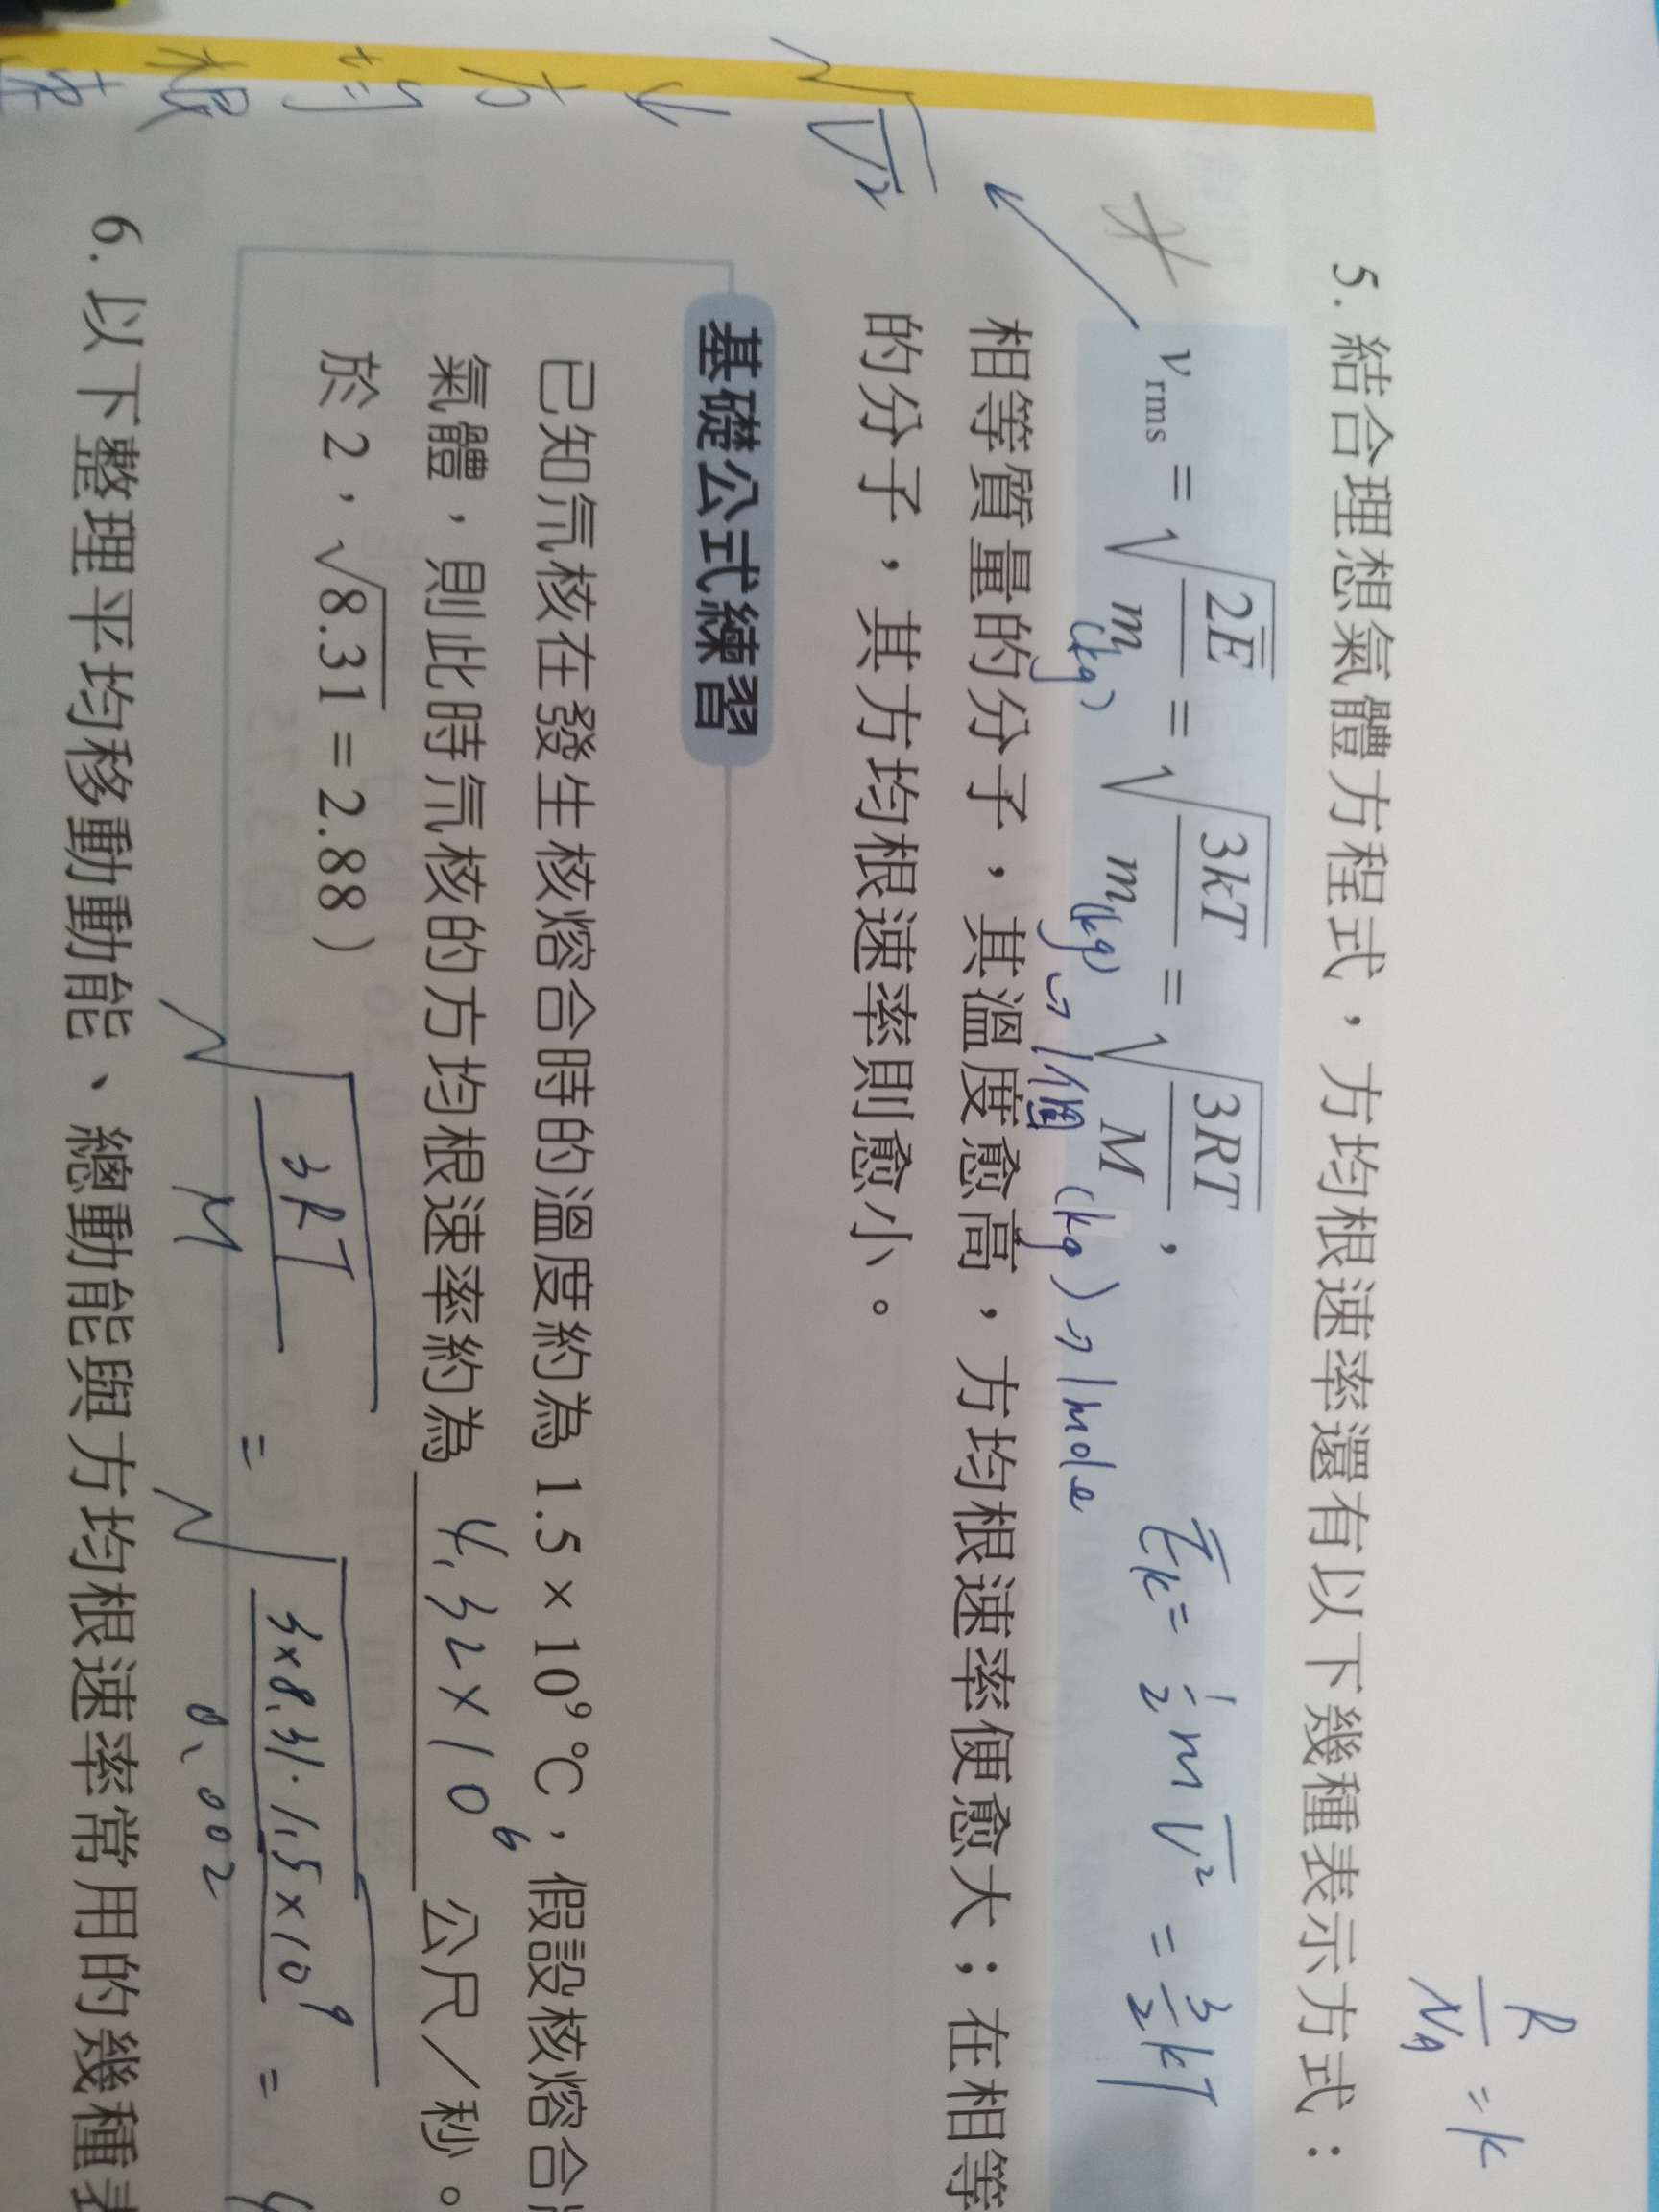 R/N_A = k
5. 結合理想氣體方程式，方均根速率還有以下幾種表示方式：
v_rms = √(2Ē/m) = √(3kT/m) = √(3RT/M)， Ēk = 1/2 m v̄² = 3/2 kT
(kg) (kg)→1個 (kg)→1mole
相等質量的分子，其溫度愈高，方均根速率便愈大；在相等
的分子，其方均根速率則愈小。
√v̄²
↓
方
均
根
速
基礎公式練習
已知氘核在發生核熔合時的溫度約為 1.5 × 10⁹ ℃，假設核熔合
氣體，則此時氘核的方均根速率約為 4.32×10⁶ 公尺／秒。
於 2，√8.31 = 2.88）
√(3RT/M) = √(3×8.31·1.5×10⁹/0.002) =
6. 以下整理平均移動動能、總動能與方均根速率常用的幾種表